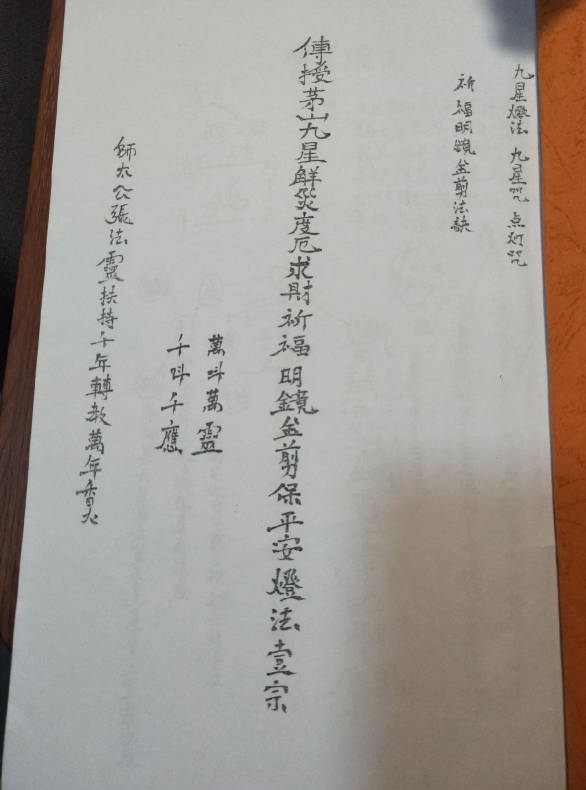 九星燈法 九星咒 点灯咒
祈福明鏡金剪法訣
傳授茅山九星解災度厄求財祈福明鏡金剪保平安燈法壹宗
萬叫萬靈
千叫千應
師太公張法靈扶持千年轉教萬年香火